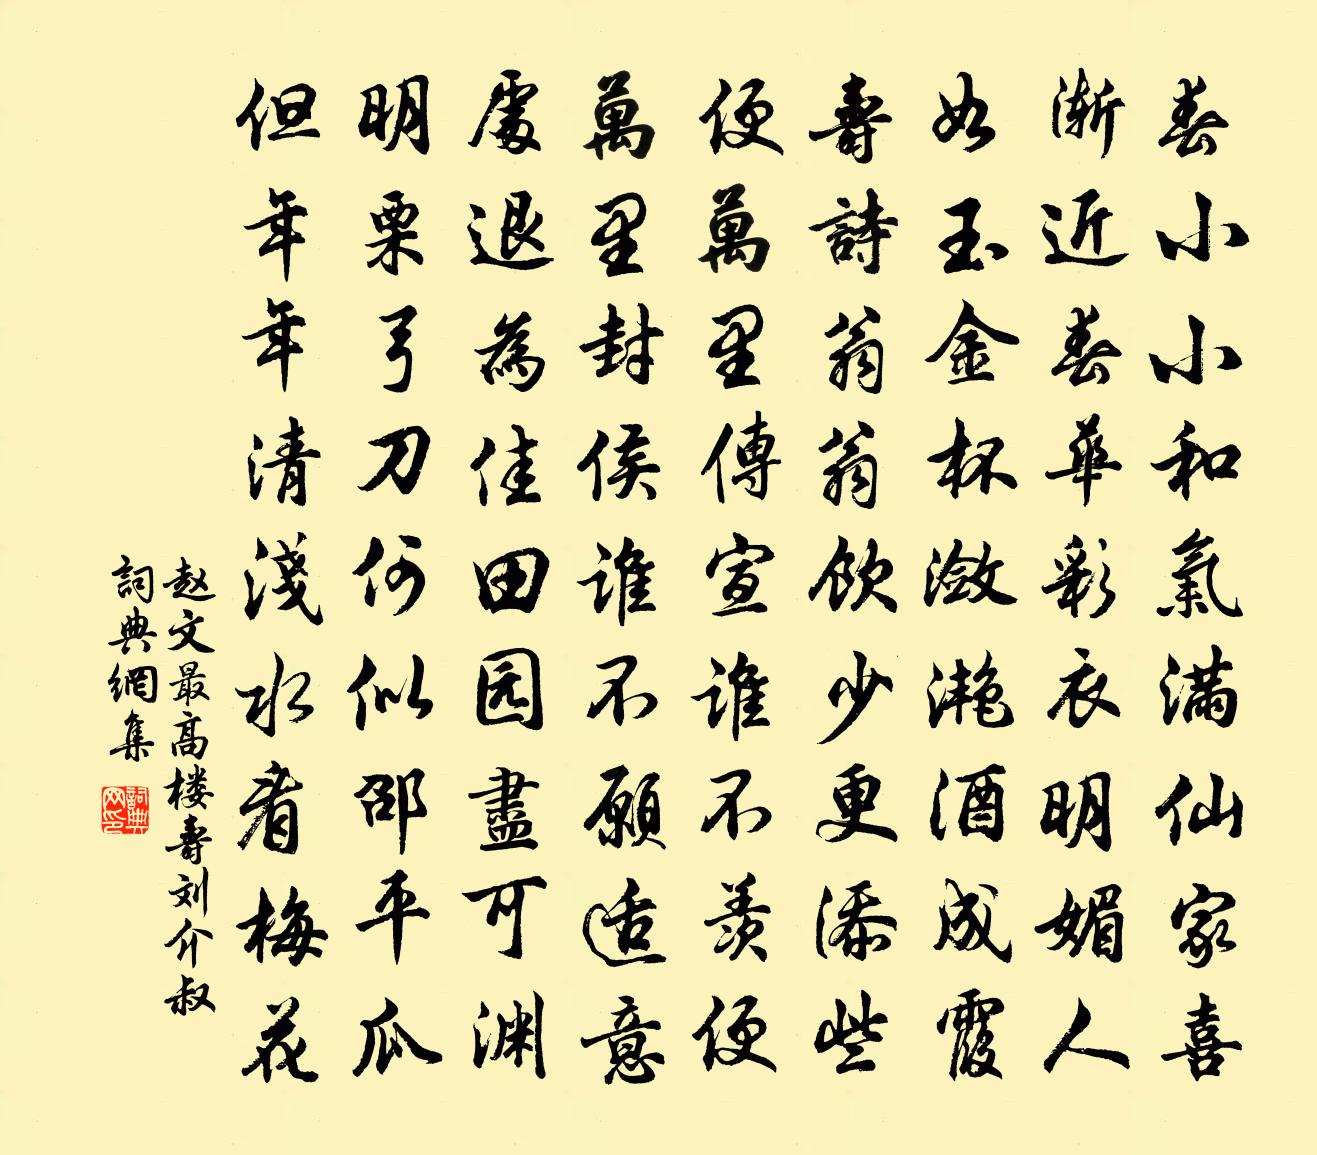 春小小和氣滿仙家喜
漸近春華彩衣明媚人
如玉金杯潋滟酒成霞
壽詩翁翁飲少更添些
便萬里傳宣誰不羨便
萬里封侯誰不願適意
處退為佳田园盡可渊
明栗弓刀何似邵平瓜
但年年清淺水看梅花
赵文最高楼壽刘介叔
詞典網集
詞典网印